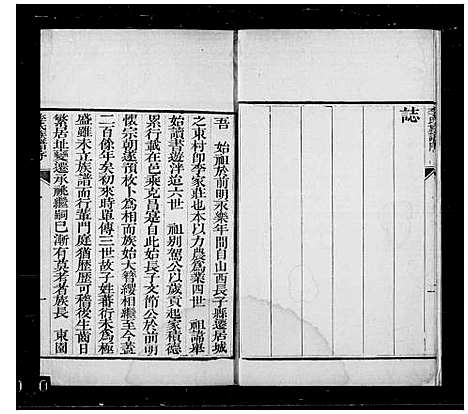 誌
吾　始祖於前明永樂年間自山西長子縣遷居城
之東村即李家莊也本以力農為業四世　祖諱畢
始讀書遊泮迨六世　祖別駕公以歲貢起家積德
累行載在邑乘克昌寔自此始長子文節公於前明
懷宗朝遂預枚卜為相而族始大簪纓相繼至今蓋
二百餘年矣初來時單傳三世故子姓蕃衍未為極
盛雖未立族譜而行輩門庭猶歷歷可稽後生齒日
繁居址變遷承祧繼嗣已漸有莫考者族長　東園